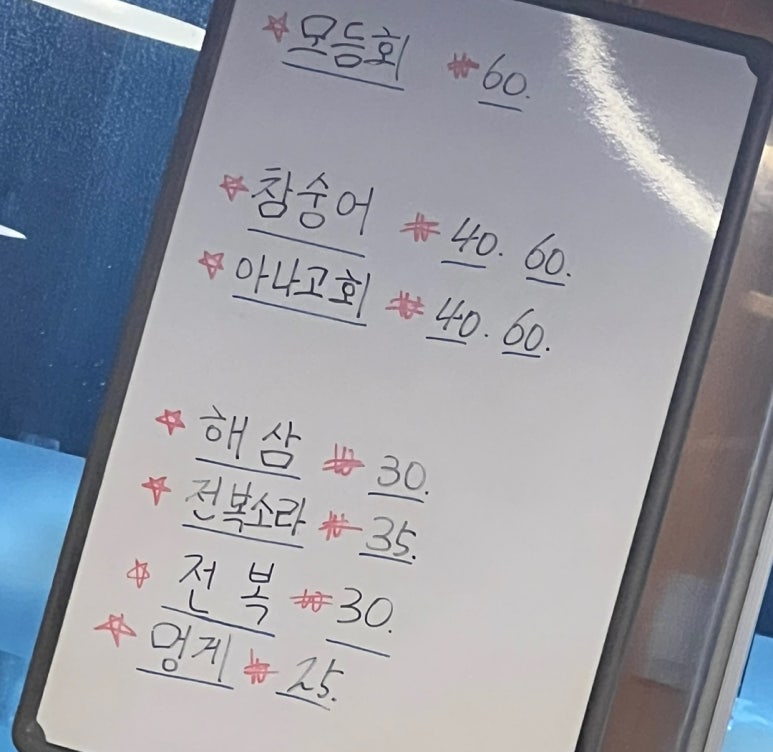 ☆ 모듬회 ₩60.
☆ 참숭어 ₩40. 60.
☆ 아나고회 ₩40. 60.
☆ 해삼 ₩30.
☆ 전복소라 ₩35.
☆ 전복 ₩30.
☆ 멍게 ₩25.